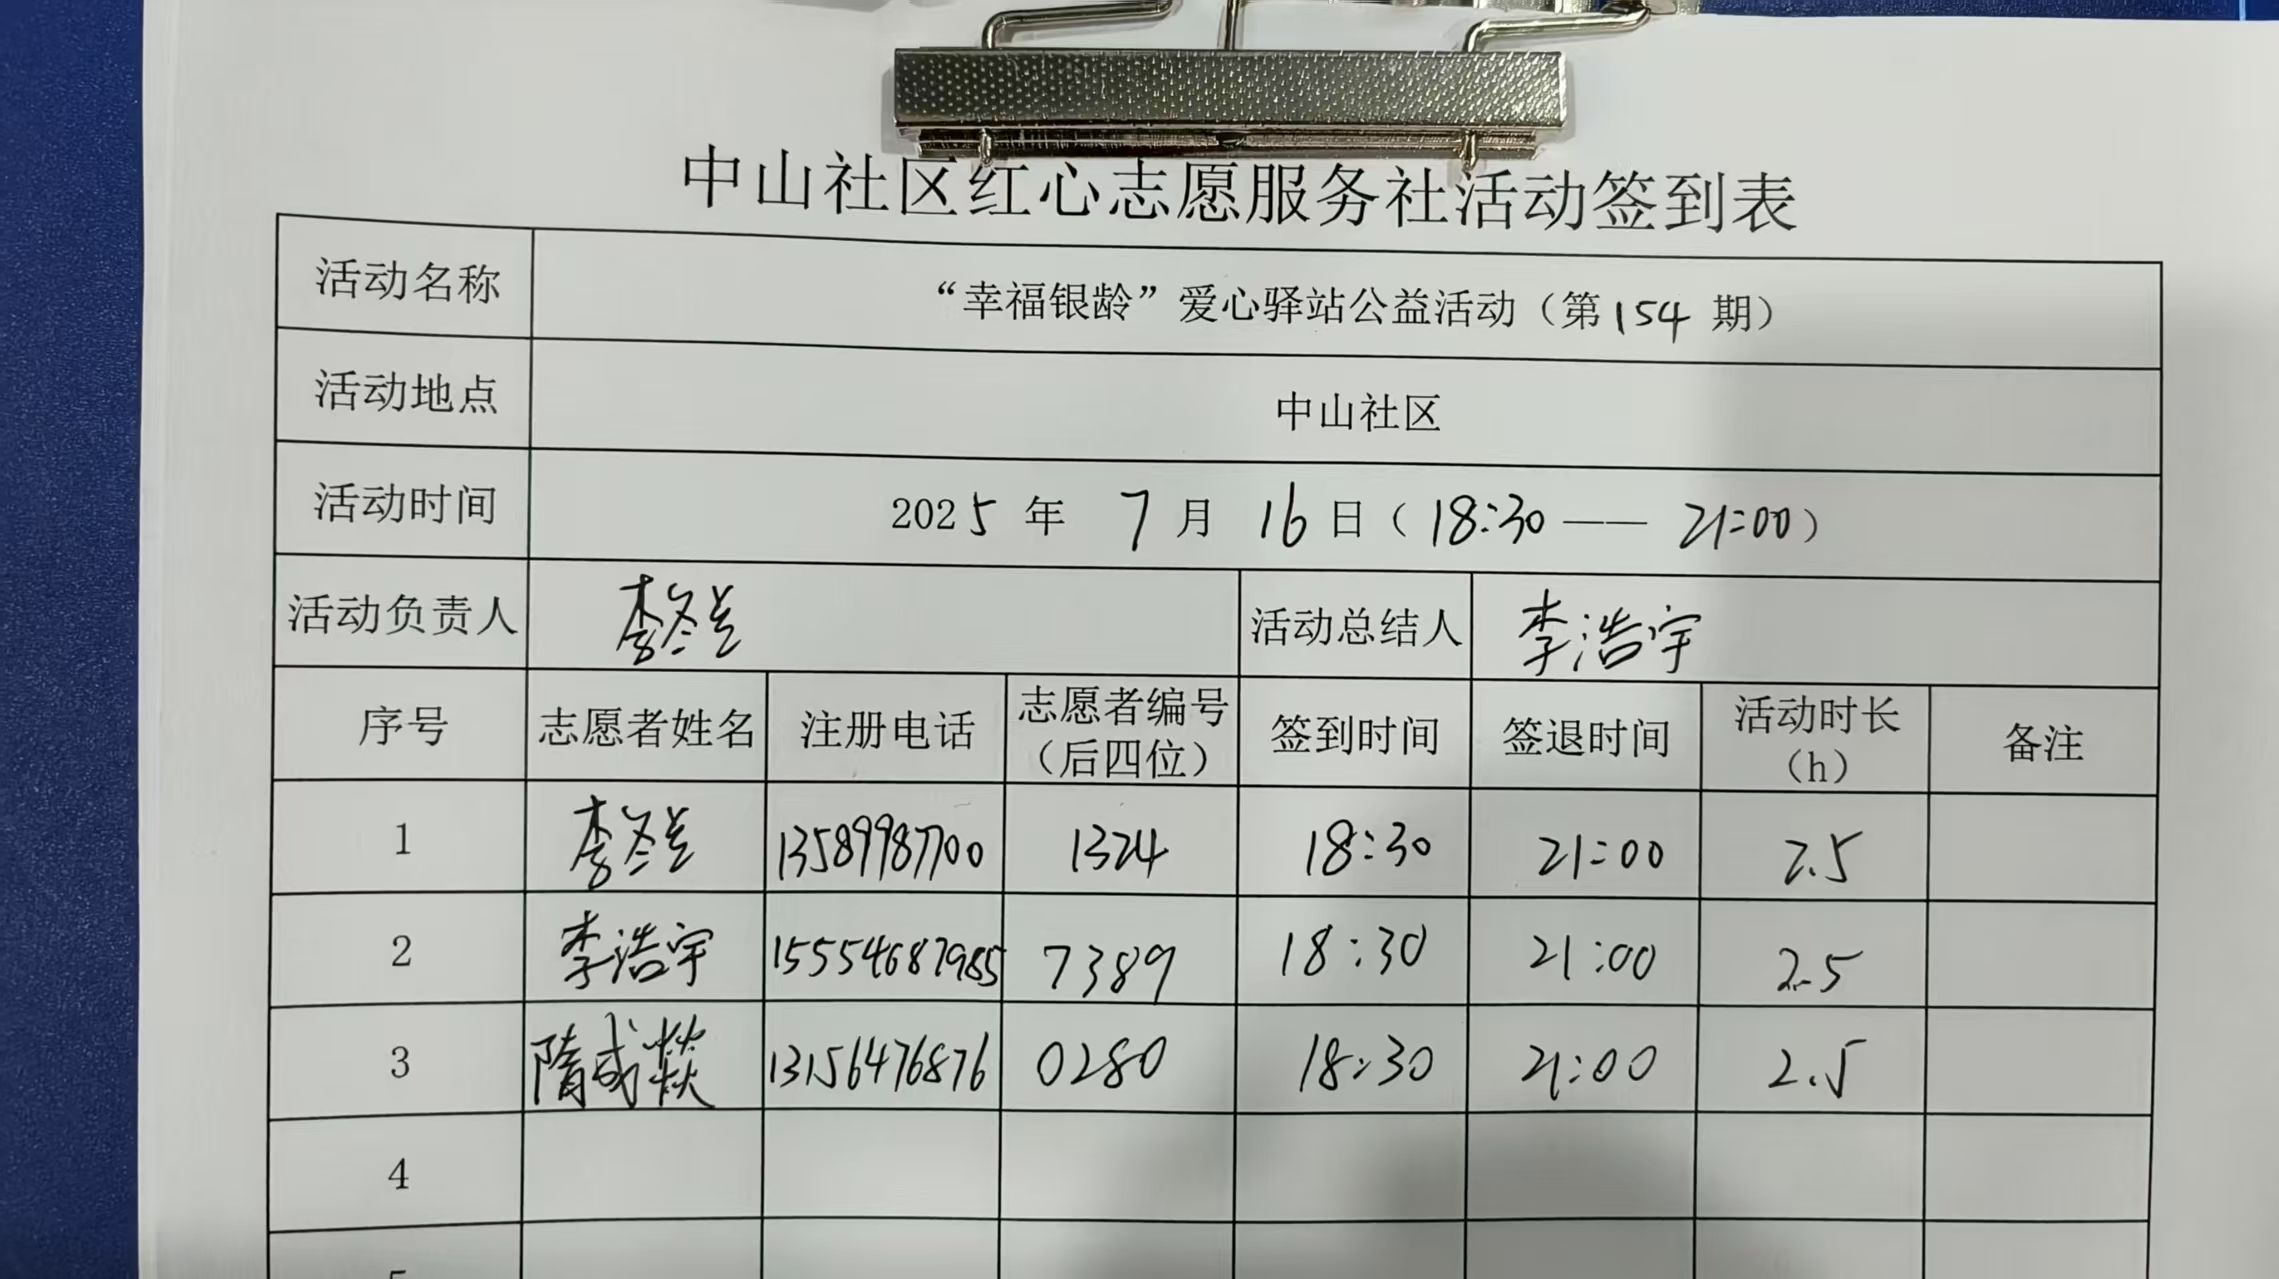 中山社区红心志愿服务社活动签到表
活动名称 “幸福银龄”爱心驿站公益活动（第154期）
活动地点 中山社区
活动时间 2025年 7月 16日（18:30 —— 21:00）
活动负责人 李冬兰 活动总结人 李浩宇
序号 志愿者姓名 注册电话 志愿者编号（后四位） 签到时间 签退时间 活动时长（h） 备注
1 李冬兰 13589987700 1324 18:30 21:00 2.5
2 李浩宇 15554687985 7389 18:30 21:00 2.5
3 隋成燚 13156476876 0280 18:30 21:00 2.5
4